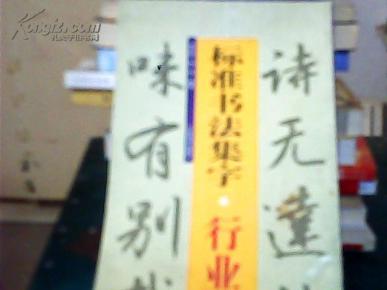 Kongfz.com
孔夫子旧书网
诗无達
标准书法集字·行业
味有别